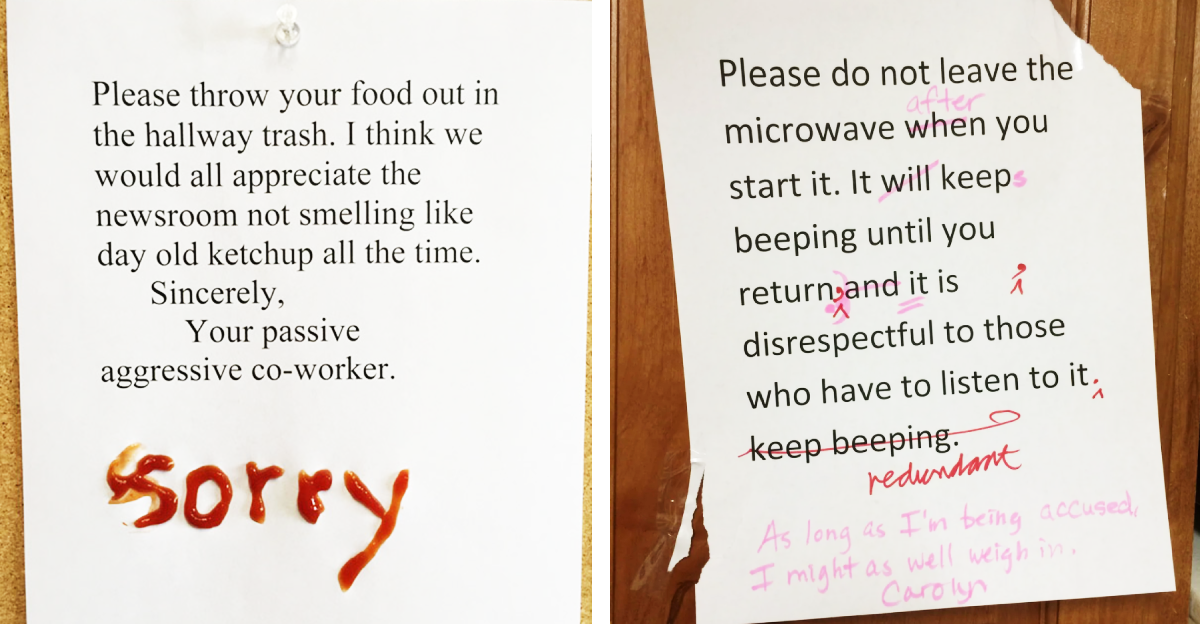 Please throw your food out in
the hallway trash. I think we
would all appreciate the
newsroom not smelling like
day old ketchup all the time.
Sincerely,
Your passive
aggressive co-worker.
sorry
Please do not leave the
after
microwave when you
start it. It will keeps
beeping until you
return; and it is
disrespectful to those
who have to listen to it.
keep beeping.
redundant
As long as I'm being accused,
I might as well weigh in.
Carolyn